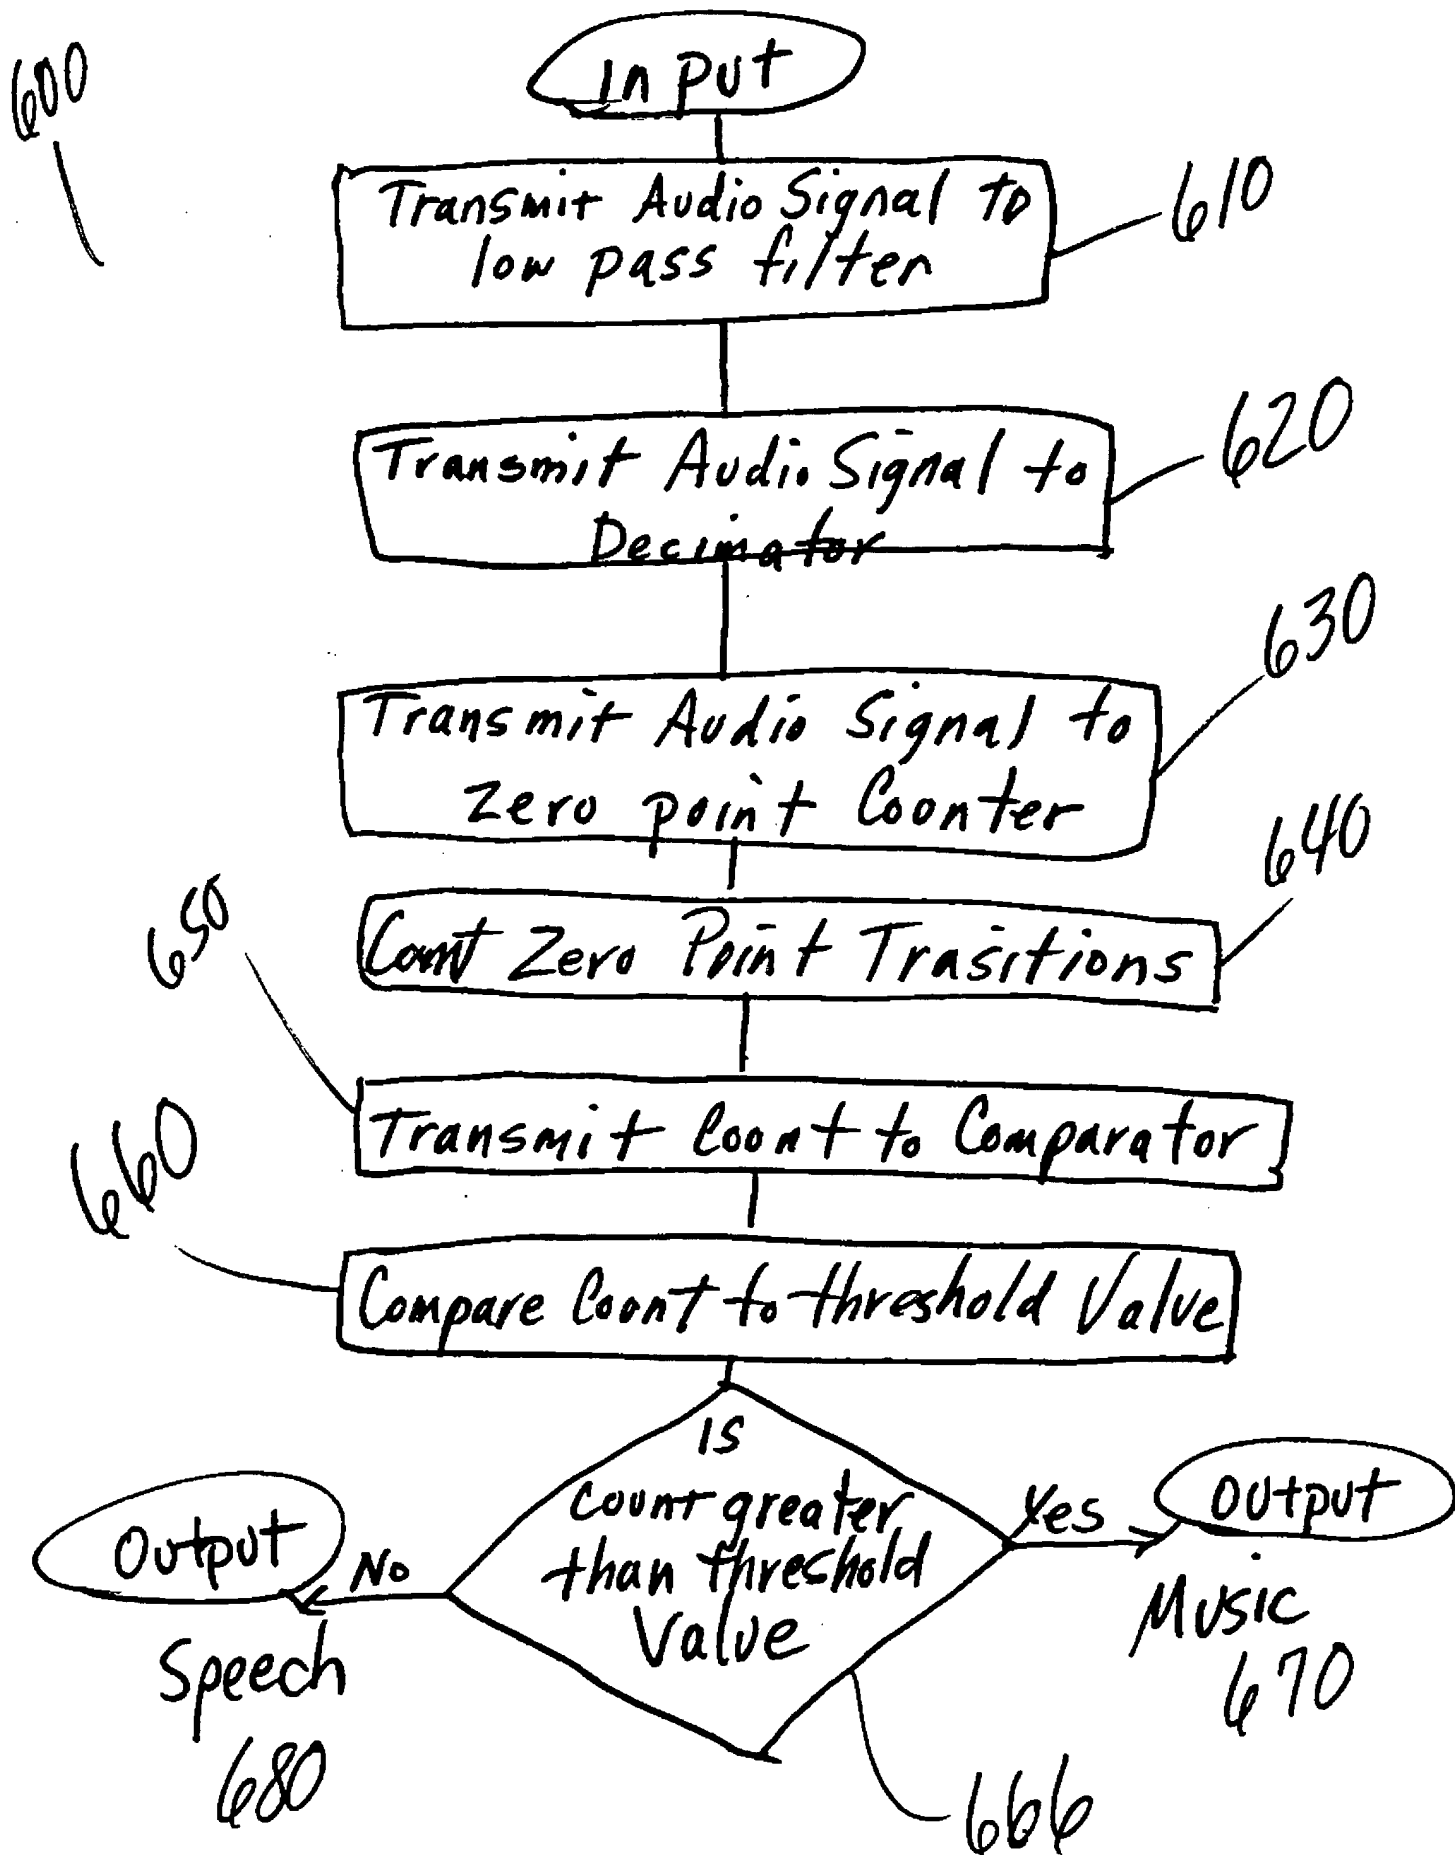 600
Input
Transmit Audio Signal to
low pass filter
610
Transmit Audio Signal to
Decimator
620
Transmit Audio Signal to
Zero point Counter
630
Count Zero Point Trasitions
640
650
Transmit Count to Comparator
660
Compare Count to threshold Value
is
count greater
than threshold
Value
Yes
Output
Music
670
No
Output
Speech
680
666